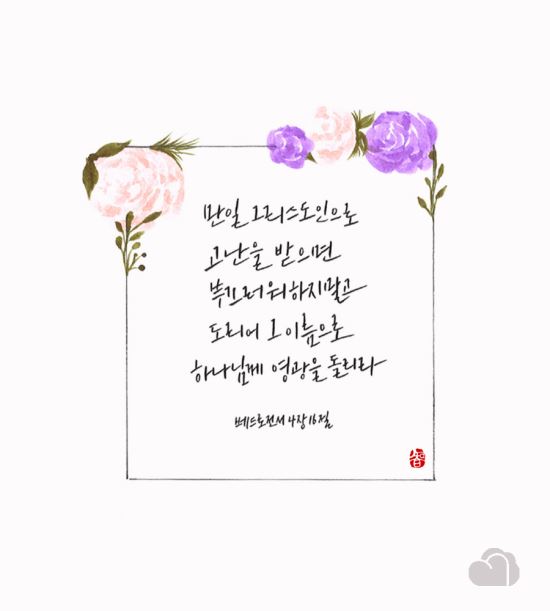 만일 그리스도인으로
고난을 받으면
부끄러워하지말고
도리어 그 이름으로
하나님께 영광을 돌리라
베드로전서 4장 16절